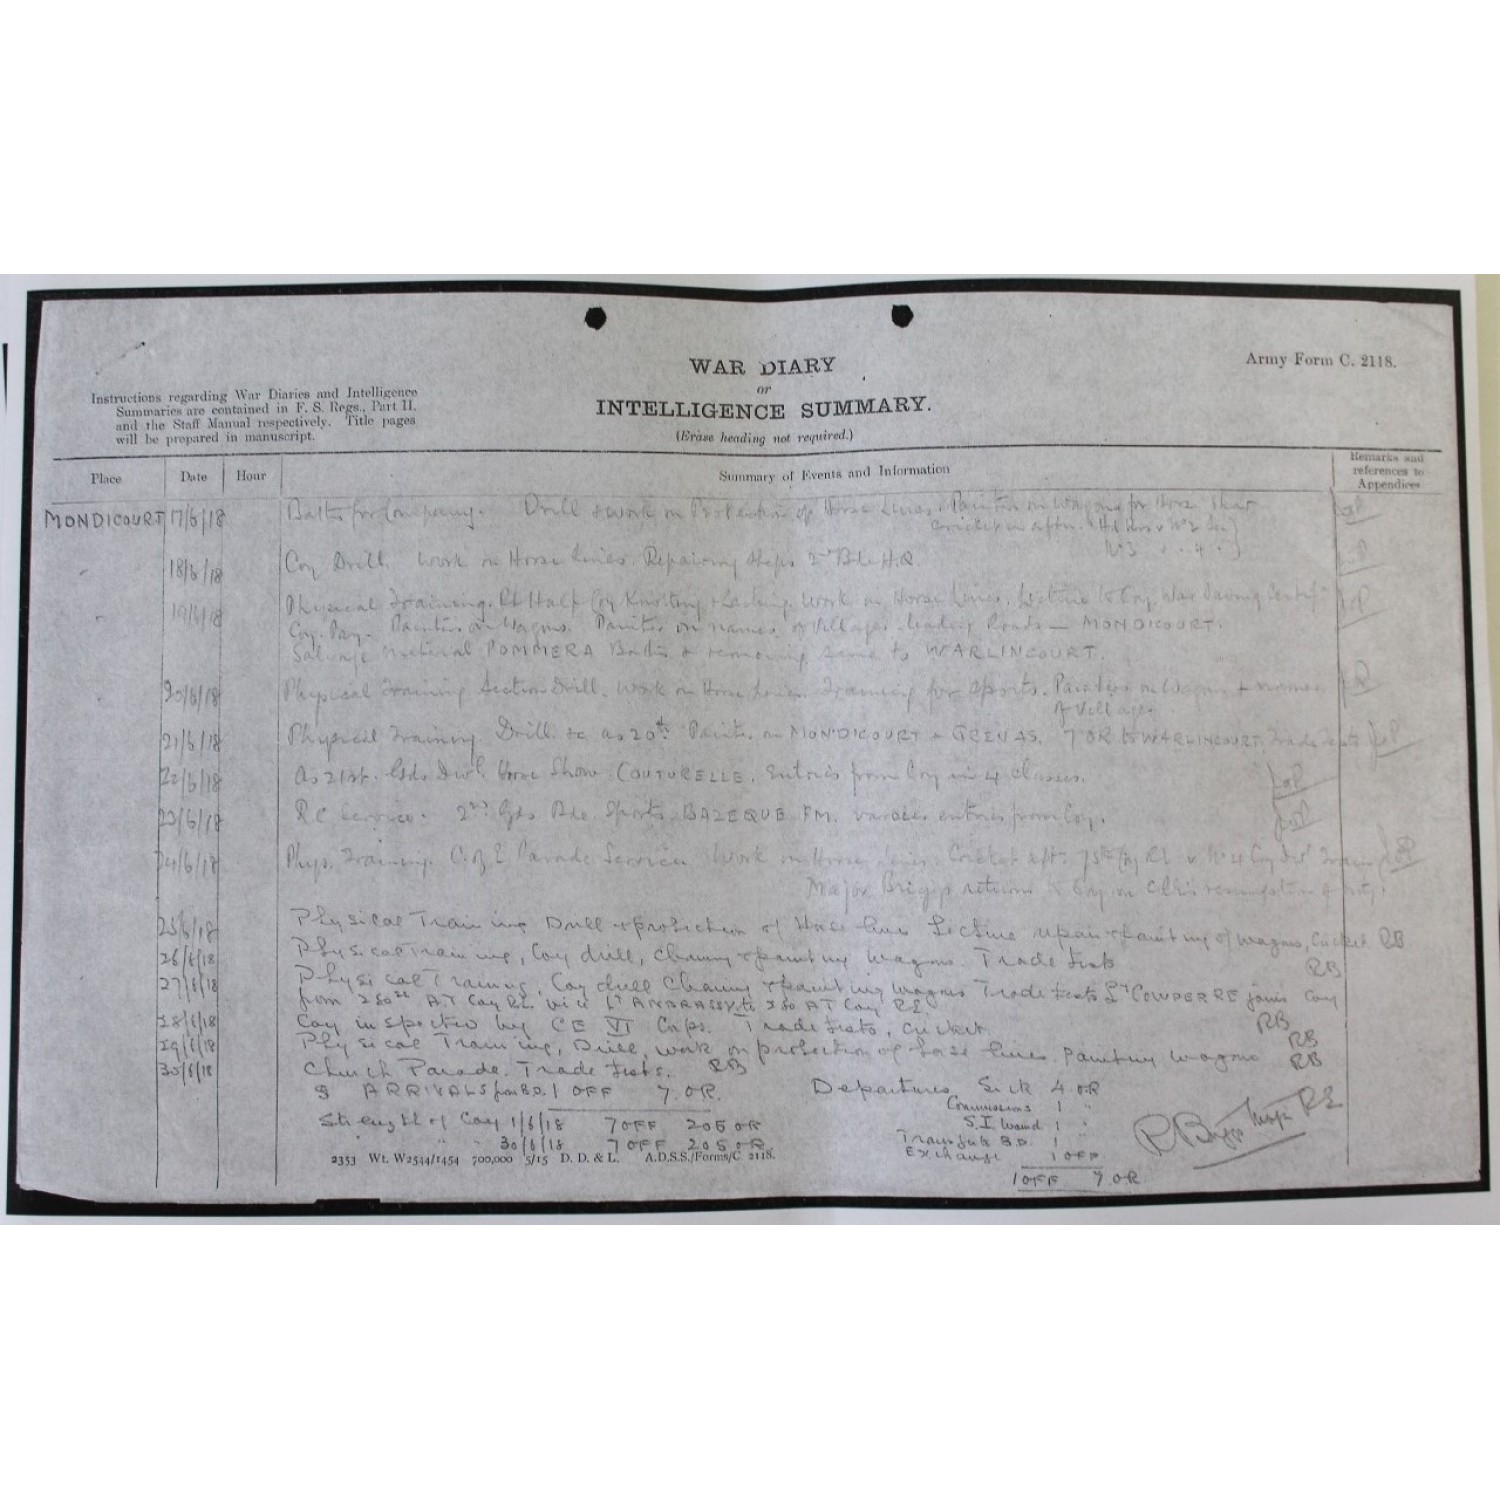 WAR DIARY
or
INTELLIGENCE SUMMARY.
(Erase heading not required.)
Army Form C. 2118.
Instructions regarding War Diaries and Intelligence
Summaries are contained in F. S. Regs., Part II.
and the Staff Manual respectively. Title pages
will be prepared in manuscript.
Place Date Hour Summary of Events and Information Remarks and references to Appendices
MONDICOURT 17/6/18 Baths for Company. Drill & work on Protection of Horse Lines. Painters on Wagons for Horse Show
cricket in aftn. Hd Qrs v No 2 Sec
No 3 " " 4 "
18/6/18 Coy Drill. Work on Horse Lines. Repairing steps 2nd Bde H.Q.
19/6/18 Physical Training. Rt Half Coy Knotting & Lashing. Work on Horse Lines. Lecture to Coy. War Saving
Coy. Pay. Painters on Wagons. Painters on names of Villages leading Roads MONDICOURT.
Salvage material POMMERA Baths & removing same to WARLINCOURT.
20/6/18 Physical Training Section Drill. Work on Horse Lines. Training for Sports. Painters on Wagons & names
of Villages
21/6/18 Physical Training. Drill &c as 20th. Painters on MONDICOURT & GRENAS. 7 OR to WARLINCOURT. Trade Tests
22/6/18 As 21st. Gds Divl. Horse Show COUTURELLE. Entries from Coy in 4 classes.
23/6/18 R.C Service. 2nd Gds Bde. Sports BAZEQUE FM. various entries from Coy.
24/6/18 Phys. Training. C. of E Parade Service Work on Horse Lines. Cricket aft. 75th Coy RE v No 4 Coy Div Train
Major Briggs returns to Coy on resumption of duty.
25/6/18 Physical Training Drill & protection of Horse lines Lecture painting of wagons, Cricket RB
26/6/18 Physical Training, Coy drill, cleaning & painting wagons. Trade Tests RB
27/6/18 Physical Training, Coy drill cleaning & painting wagons Trade Tests Lt COWPER RE joins Coy
from 280th A.T Coy RE vice Lt ANDRASSY to 280 AT Coy RE RB
28/6/18 Coy inspected by CE VI Corps. Trade tests, cricket. RB
29/6/18 Physical Training, Drill, work on protection of horse lines. Painting wagons RB
30/6/18 Church Parade. Trade Tests. RB
ARRIVALS from B.D. 1 OFF 7 OR. Departures Sick 4 OR
Commissions 1 "
Strength of Coy 1/6/18 7 OFF 205 OR S.I Wound 1 "
" " " 30/6/18 7 OFF 205 OR Transfer B.D. 1 "
Exchange 1 OFF
1 OFF 7 OR
R Briggs Major RE
2353 Wt. W2544/1454 700,000 5/15 D. D. & L. A.D.S.S./Forms/C. 2118.